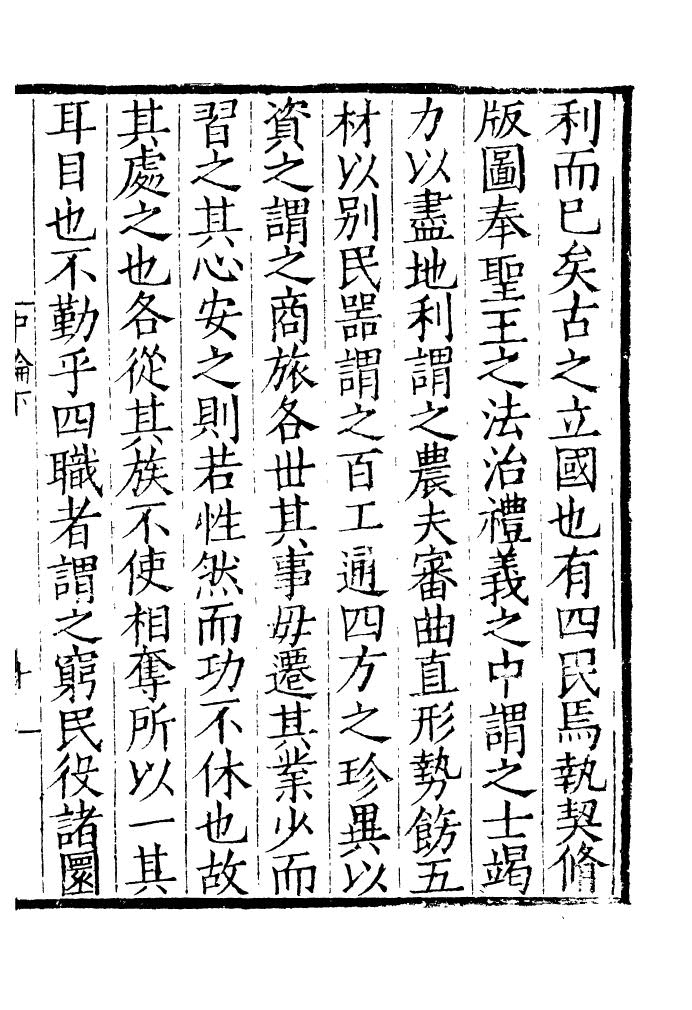 利而已矣古之立國也有四民焉執契脩
版圖奉聖王之法治禮義之中謂之士竭
力以盡地利謂之農夫審曲直形勢飭五
材以别民器謂之百工通四方之珍異以
資之謂之商旅各世其事毋遷其業少而
習之其心安之則若性然而功不休也故
其處之也各從其族不使相奪所以一其
耳目也不勤乎四職者謂之窮民役諸圜
中論下